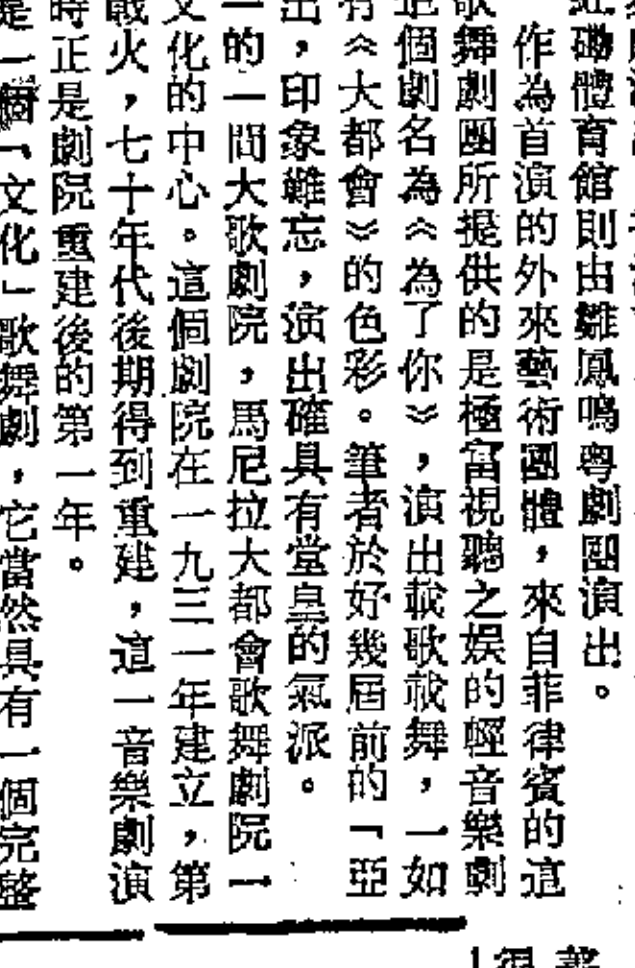 近磡體育館則由雛鳳鳴粵劇團演出。
作為首演的外來藝術團體，來自菲律賓的這
歌舞劇團所提供的是極富視聽之娛的輕音樂劇
個劇名為《為了你》，演出載歌載舞，一如
有《大都會》的色彩。筆者於好幾屆前的「亞
出，印象難忘，演出確具有堂皇的氣派。
一的一間大歌劇院，馬尼拉大都會歌舞劇院一
文化的中心。這個劇院在一九三一年建立，第
戰火，七十年代後期得到重建，這一音樂劇演
時正是劇院重建後的第一年。
是一個「文化」歌舞劇，它當然具有一個完整